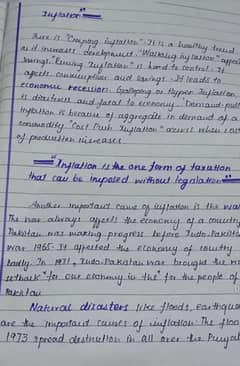 Inflation
There is "Creeping Inflation". It is a healthy trend
as it increases development. "Walking Inflation" affects
savings. "Running Inflation" is hard to control. It
affects consumption and savings. It leads to
economic recession. Galloping or Hyper Inflation
is disastrous and fatal to economy. Demand-pull
inflation is because of aggregate in demand of a
commodity. "Cost Push Inflation" occurs when cost
of production increases.
"Inflation is the one form of taxation
that can be imposed without legislation"
Another important cause of inflation is the war.
The war always affects the economy of a country
Pakistan was making progress before Indo-Pakista
war 1965. It affected the economy of country
badly. In 1971, Indo-Pakistan war brought the
setback for our economy in the for the people of
Pakistan
Natural disasters like floods, earthquake
are the important causes of inflation. The flood
1973 spread destruction in all over the Punjab